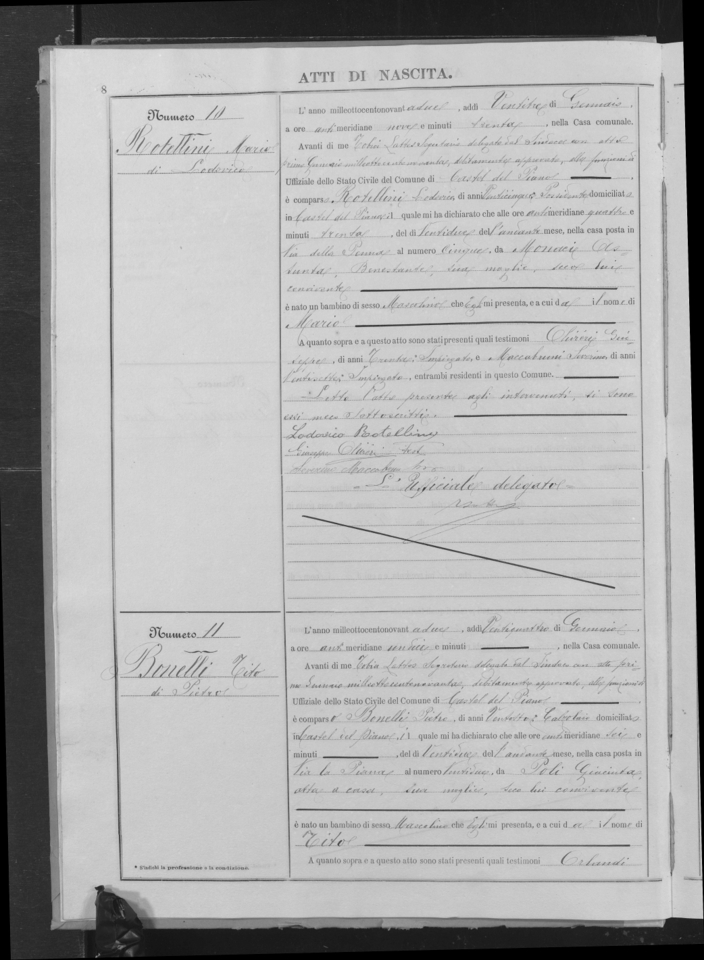 8
ATTI DI NASCITA.
Numero 10
Rotellini Mario
di Lodovico
L'anno millecottocentonovantadue, addì Ventitre di Gennaio,
a ore antimeridiane nove e minuti trenta, nella Casa comunale.
Avanti di me Segretario delegato dal Sindaco con atto
primo Gennaio milleottocentonovanta, debitamente approvato, alle funzioni di
Uffiziale dello Stato Civile del Comune di Castel del Piano
è comparso Rotellini Lodovico, di anni Possidente domiciliato
in Castel del Piano, il quale mi ha dichiarato che alle ore antimeridiane quattro e
minuti trenta, del dì Ventidue del l'andante mese, nella casa posta in
Via della Penna al numero Cinque, da Monaci As-
sunta, Benestante, sua moglie, seco lui
convivente
è nato un bambino di sesso Mascolino che Egli mi presenta, e a cui dà il nome di
Mario
A quanto sopra e a questo atto sono stati presenti quali testimoni Giu-
seppe, di anni Trenta, Impiegato, e di anni
Ventisette, Impiegato, entrambi residenti in questo Comune.
Letto l'atto presente agli intervenuti, si sono
essi meco sottoscritti.
Lodovico Rotellini
Giuseppe Test
L'Ufficiale delegato
Numero 11
Bonelli Tito
di Pietro
* S'indichi la professione o la condizione.
L'anno millecottocentonovantadue, addì Ventiquattro di Gennaio,
a ore antimeridiane undici e minuti, nella Casa comunale.
Avanti di me Segretario delegato dal Sindaco con atto pri-
mo Gennaio milleottocentonovanta, debitamente approvato, alle funzioni di
Uffiziale dello Stato Civile del Comune di Castel del Piano
è comparso Bonelli Pietro, di anni Ventotto, Calzolaio domiciliato
in Castel del Piano, il quale mi ha dichiarato che alle ore antimeridiane sei e
minuti, del dì Ventidue del l'andante mese, nella casa posta in
Via la Piana al numero, da Poli Giacinta,
atta a casa, sua moglie, seco lui convivente
è nato un bambino di sesso Mascolino che Egli mi presenta, e a cui dà il nome di
Tito
A quanto sopra e a questo atto sono stati presenti quali testimoni Orlandi